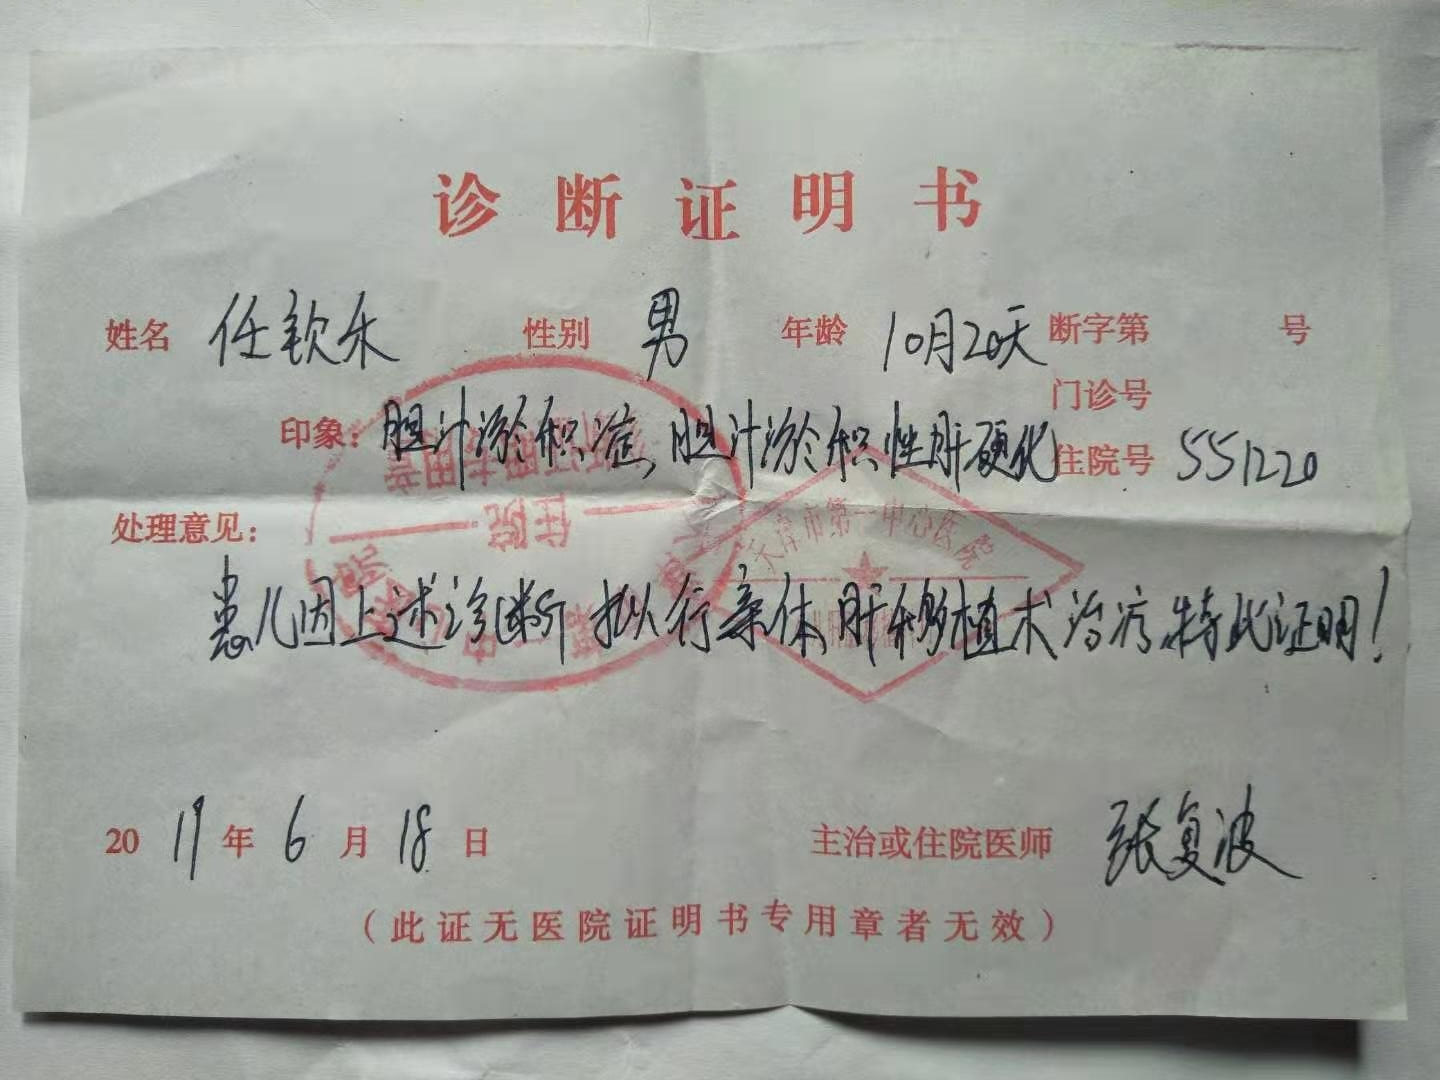 诊断证明书
姓名 任钦禾 性别 男 年龄 10月20天 断字第 号
门诊号
印象: 胆汁淤积症, 胆汁淤积性肝硬化 住院号 551220
处理意见:
患儿因上述诊断 拟行亲体肝移植术治疗 特此证明!
天津市第一中心医院
住院
2019年6月18日 主治或住院医师 张复波
(此证无医院证明书专用章者无效)